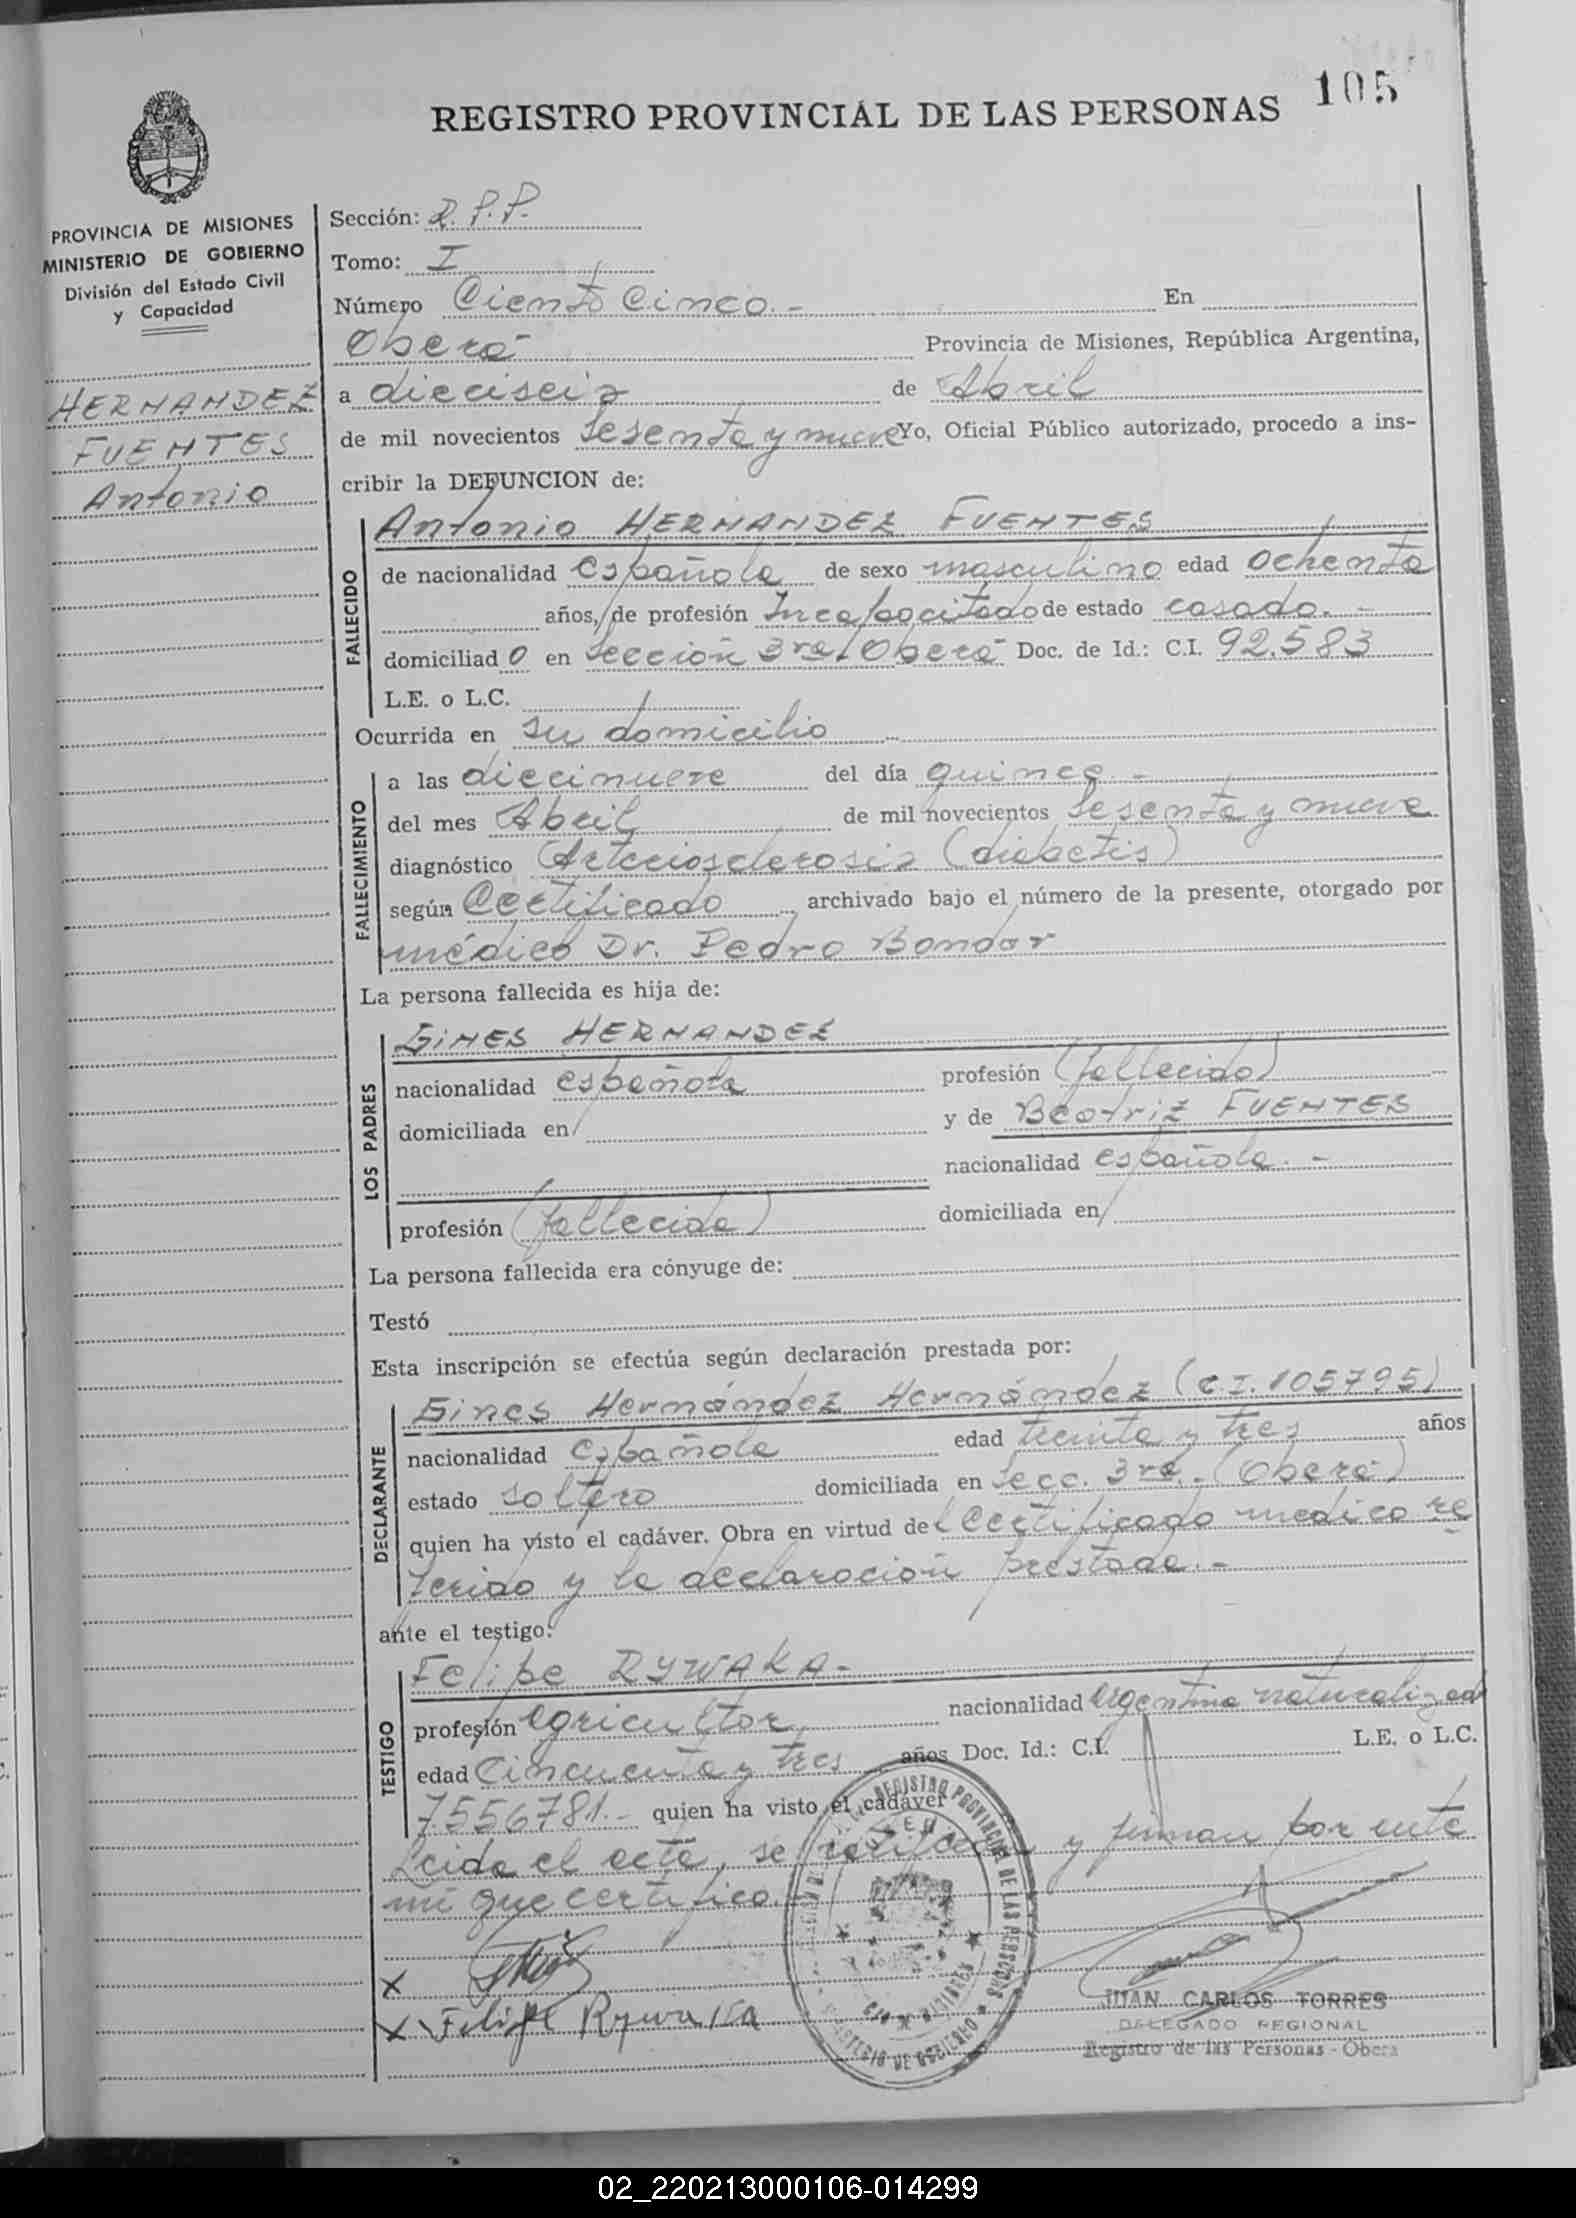 105
REGISTRO PROVINCIAL DE LAS PERSONAS
PROVINCIA DE MISIONES
MINISTERIO DE GOBIERNO
División del Estado Civil
y Capacidad
HERNANDEZ
FUENTES
Antonio
Sección: R. P. P.
Tomo: I
Número Ciento Cinco. - En
Oberá Provincia de Misiones, República Argentina,
a dieciseis de Abril
de mil novecientos Sesenta y nueve Yo, Oficial Público autorizado, procedo a ins-
cribir la DEFUNCION de:
FALLECIDO
Antonio HERNANDEZ FUENTES
de nacionalidad española de sexo masculino edad ochenta
años, de profesión Incapacitado de estado casado. -
domiciliado en Sección 3ra. Oberá Doc. de Id.: C.I. 92.583
L.E. o L.C.
Ocurrida en su domicilio
FALLECIMIENTO
a las diecinueve del día quince. -
del mes Abril de mil novecientos Sesenta y nueve
diagnóstico Arteriosclerosis (diabetis)
según Certificado archivado bajo el número de la presente, otorgado por
médico Dr. Pedro Bondar
La persona fallecida es hija de:
LOS PADRES
GINES HERNANDEZ
nacionalidad española profesión (fallecido)
domiciliada en y de Beatriz FUENTES
nacionalidad española. -
profesión (fallecida) domiciliada en
La persona fallecida era cónyuge de:
Testó
Esta inscripción se efectúa según declaración prestada por:
DECLARANTE
Gines Hernández Hernández (C.I. 105795)
nacionalidad Española edad treinta y tres años
estado soltero domiciliada en Secc. 3ra. - (Oberá)
quien ha visto el cadáver. Obra en virtud del Certificado medico re
ferido y la declaración prestada. -
ante el testigo:
TESTIGO
Felipe RYWAKA -
profesión agricultor nacionalidad argentina naturalizad
edad Cincuenta y tres años Doc. Id.: C.I. L.E. o L.C.
7.556781.- quien ha visto el cadáver
Leida el acta, se ratifican y firman por ante
mi que certifico.
X
X Felipe Rywaka
REGISTRO PROVINCIAL DE LAS PERSONAS
MINISTERIO DE GOBIERNO
JUAN CARLOS TORRES
DELEGADO REGIONAL
Registro de las Personas - Oberá
02_220213000106-014299